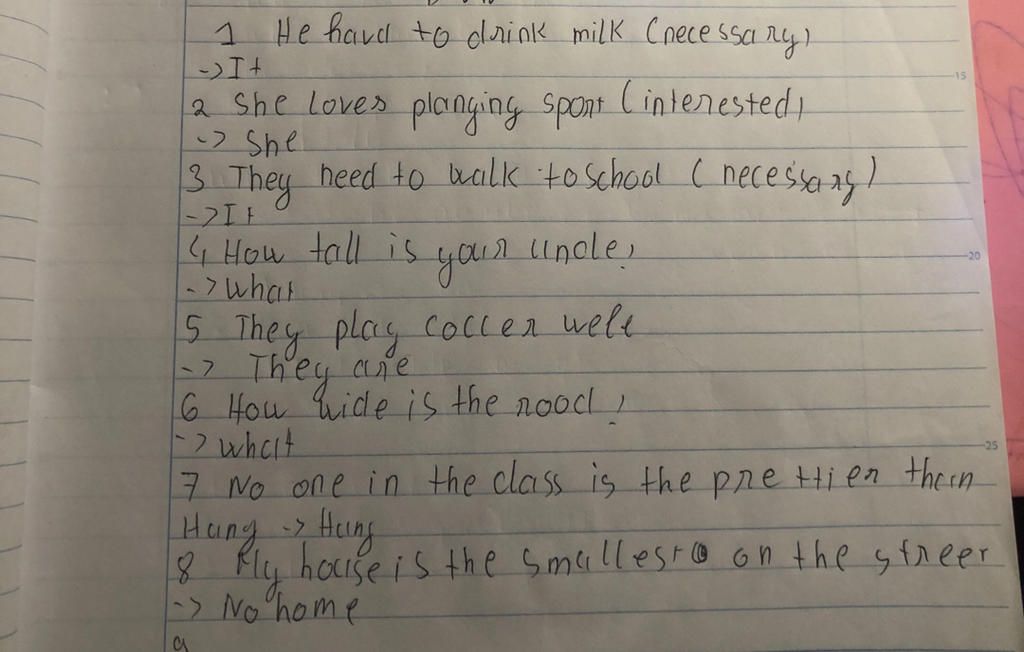 1 He havd to drink milk (necessary)
-> It
2 She loves planging sport (interested)
-> She
3 They need to walk to school (necessary)
-> It
4 How tall is your uncle?
-> What
5 They play coccer well
-> They are
6 How wide is the rood?
-> What
7 No one in the class is the prettier than
Hang -> Hang
8 My house is the smallest on the street
-> No home
9
15
20
25